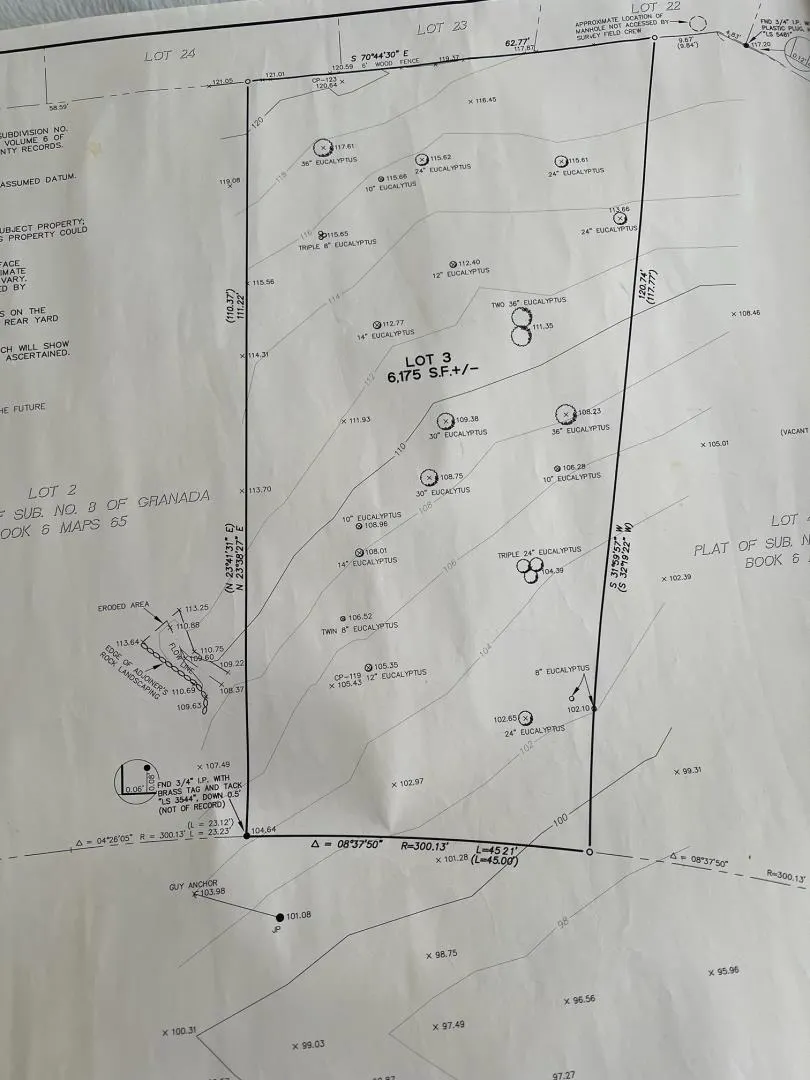 LOT 22
LOT 23
LOT 24
APPROXIMATE LOCATION OF
MANHOLE NOT ACCESSED BY
SURVEY FIELD CREW
FND 3/4" I.P. W
PLASTIC PLUG,
"LS 5461"
117.20
4.83'
9.67'
(9.84')
62.77'
117.87
S 70°44'30" E
6' WOOD FENCE
119.37
120.59
CP-123
120.64
121.01
121.05
58.59'
120
116.45
117.61
36" EUCALYPTUS
118
115.62
24" EUCALYPTUS
115.66
10" EUCALYTUS
115.61
24" EUCALYPTUS
113.66
24" EUCALYPTUS
119.08
116
115.65
TRIPLE 8" EUCALYPTUS
112.40
12" EUCALYPTUS
115.56
114
TWO 36" EUCALYPTUS
111.35
112.77
14" EUCALYPTUS
(110.37')
111.22'
120.74'
(117.77')
108.46
114.31
LOT 3
6,175 S.F.+/-
112
111.93
109.38
30" EUCALYPTUS
108.23
36" EUCALYPTUS
110
105.01
(VACANT
108.75
30" EUCALYTUS
106.28
10" EUCALYPTUS
113.70
108
10" EUCALYPTUS
108.96
108.01
14" EUCALYPTUS
106
TRIPLE 24" EUCALYPTUS
104.39
(N 23°41'31" E)
N 23°38'27" E
S 31°59'57" W
(S 32°19'22" W)
102.39
SUBDIVISION NO.
VOLUME 6 OF
NTY RECORDS.
ASSUMED DATUM.
UBJECT PROPERTY;
G PROPERTY COULD
FACE
IMATE
VARY.
ED BY
S ON THE
REAR YARD
CH WILL SHOW
ASCERTAINED.
HE FUTURE
LOT 2
F SUB. NO. 8 OF GRANADA
BOOK 6 MAPS 65
LOT
PLAT OF SUB. N
BOOK 6
ERODED AREA
113.25
110.88
113.64
FLOW LINE
110.75
109.60
109.22
EDGE OF ADJOINER'S
ROCK LANDSCAPING
110.69
108.37
109.63
106.52
TWIN 8" EUCALYPTUS
104
105.35
CP-119 12" EUCALYPTUS
105.43
8" EUCALYPTUS
102.10
102.65
24" EUCALYPTUS
102
99.31
107.49
0.06'
0.08'
FND 3/4" I.P. WITH
BRASS TAG AND TACK
"LS 3544", DOWN 0.5'
(NOT OF RECORD)
102.97
100
(L = 23.12')
Δ = 04°26'05" R = 300.13' L = 23.23'
104.64
Δ = 08°37'50" R=300.13' L=45.21'
101.28 (L=45.00')
Δ = 08°37'50"
R=300.13'
GUY ANCHOR
103.98
101.08
JP
98
98.75
95.96
96.56
97.49
100.31
99.03
97.27